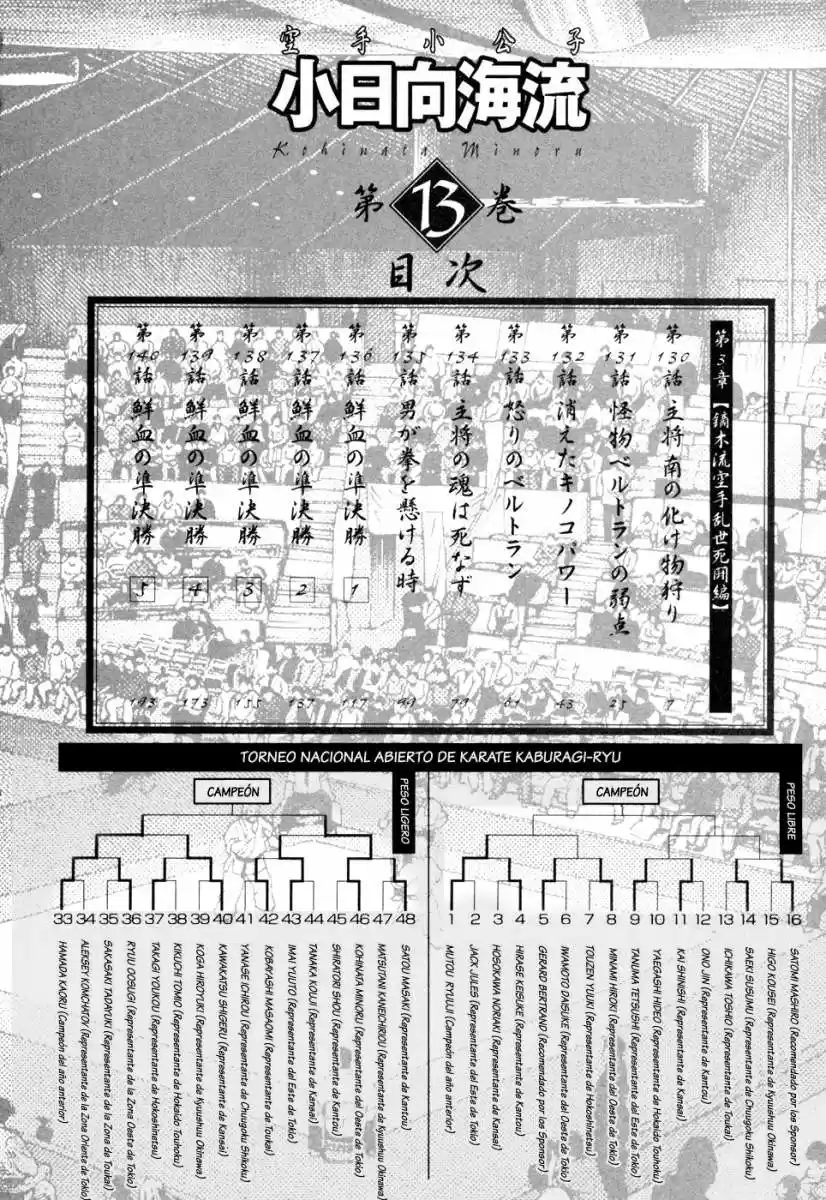 空手小公子
小日向海流
Kohinata Minoru
第13巻
目次
第3章【鏑木流空手乱世死闘編】
第130話 主将南の化け物狩り 7
第131話 怪物ベルトランの弱点 25
第132話 消えたキノコパワー 43
第133話 怒りのベルトラン 61
第134話 主将の魂は死なず 79
第135話 男が拳を懸ける時 99
第136話 鮮血の準決勝 1 117
第137話 鮮血の準決勝 2 137
第138話 鮮血の準決勝 3 155
第139話 鮮血の準決勝 4 173
第140話 鮮血の準決勝 5 193
TORNEO NACIONAL ABIERTO DE KARATE KABURAGI-RYU
PESO LIGERO
CAMPEÓN
33 HAMADA KAORU (Campeón del año anterior)
34 ALEKSEY KOMCHATOV (Representante de la Zona Oriente de Tokio)
35 SAKASAKI TADAYUKI (Representante de la Zona de Toukai)
36 RYUU OOSUGI (Representante de la Zona Oeste de Tokio)
37 TAKAGI YOUKOU (Representante de Hokoshinetsu)
38 KIKUCHI TOMIO (Representante de Hokaido Touhoku)
39 KOGA HIROYUKI (Representante de Kyuushuu Okinawa)
40 KAWAKATSU SHIGERU (Representante de Kansai)
41 YANASE ICHIROU (Representante de Chuugoku Shikoku)
42 KOBAYASHI MASAOMI (Representante de Toukai)
43 IMAI YUUTO (Representante del Este de Tokio)
44 TANAKA KOUJI (Representante de Kansai)
45 SHIRATORI SHOU (Representante de Kantou)
46 KOHINATA MINORU (Representante del Oeste de Tokio)
47 MATSUTANI KANEICHIROU (Representante de Kyuushuu Okinawa)
48 SATOU MASAKI (Representante de Kantou)
PESO LIBRE
CAMPEÓN
1 MUTOU RYUUJI (Campeón del año anterior)
2 JACK JULES (Representante del Este de Tokio)
3 HOSOKAWA NORIAKI (Representante de Kansai)
4 HIRASE KEISUKE (Representante de Kantou)
5 GERARD BERTRAND (Recomendado por los Sponsor)
6 IWAMOTO DAISUKE (Representante del Oeste de Tokio)
7 TOUZEN YUUKI (Representante de Hokoshinetsu)
8 MINAMI HIROKI (Representante del Oeste de Tokio)
9 TANUMA TETSUSHI (Representante del Este de Tokio)
10 YAEGASHI HIDEO (Representante de Hokaido Touhoku)
11 KAI SHINISHI (Representante de Kansai)
12 ONO JIN (Representante de Kantou)
13 ICHIKAWA TOSHIO (Representante de Toukai)
14 SAEKI SUSUMU (Representante de Chuugoku Shikoku)
15 HIGO KOUSEI (Representante de Kyuushuu Okinawa)
16 SATOMI MASHIRO (Recomendado por los Sponsor)